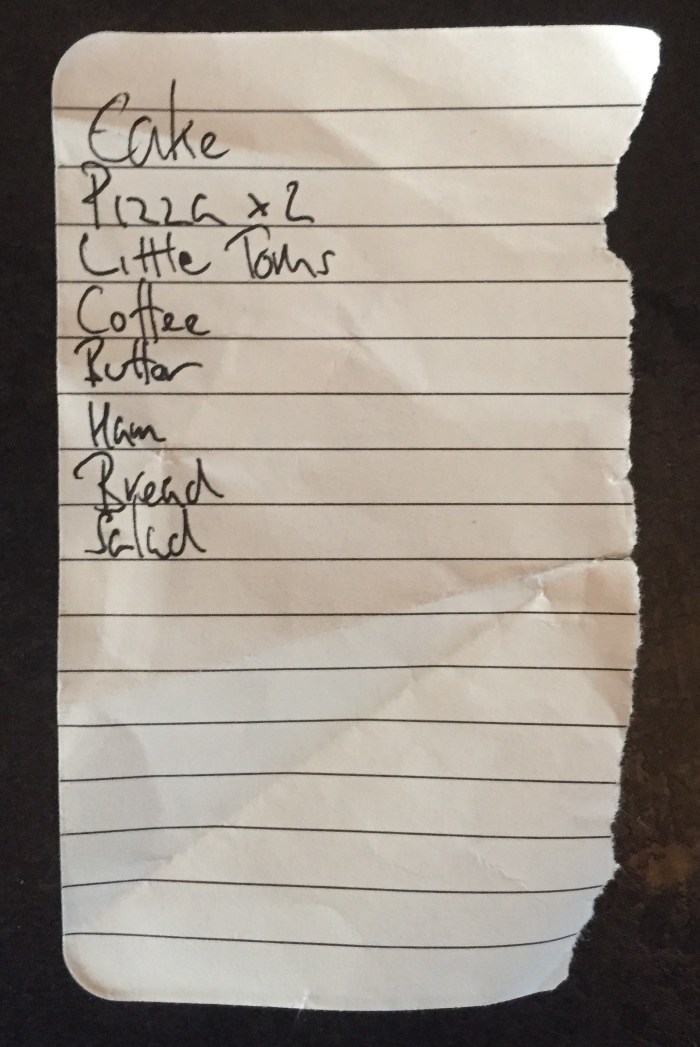 Cake
Pizza x 2
Little Toms
Coffee
Butter
Ham
Bread
Salad